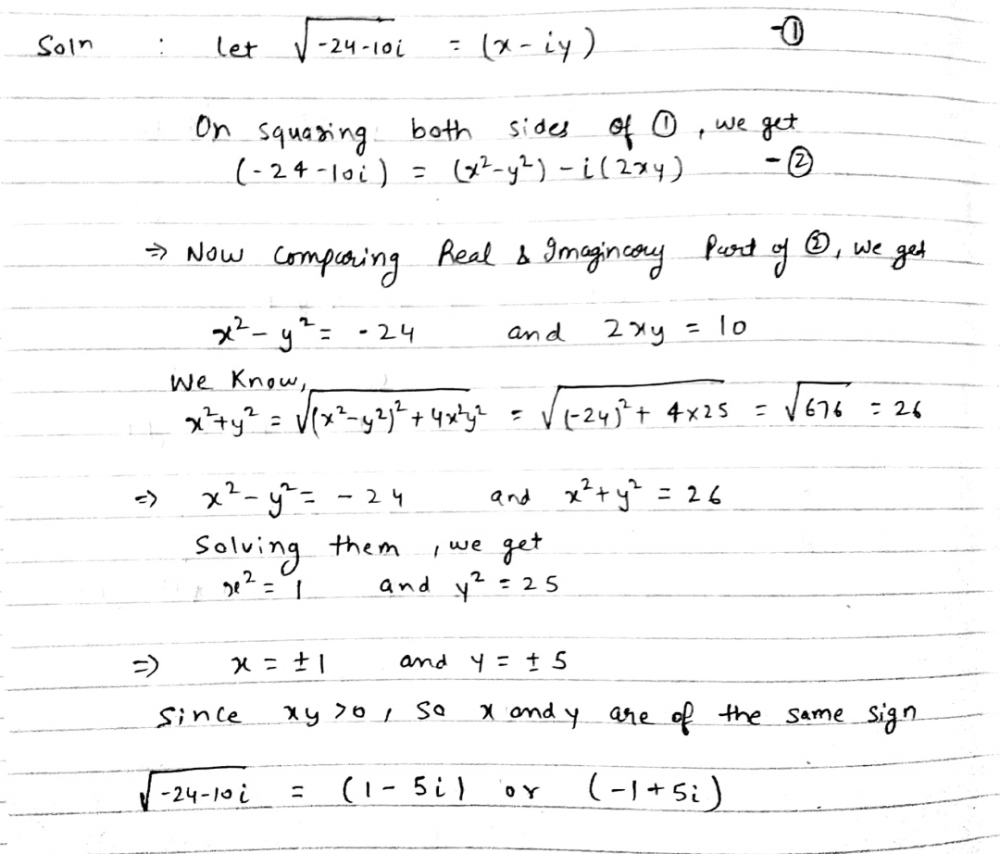 Soln : let √-24-10i = (x - iy) -①
On squaring both sides of ①, we get
(-24-10i) = (x²-y²) - i(2xy) -②
⇒ Now comparing Real & Imagincary Part of ②, we get
x² - y² = -24 and 2xy = 10
We Know,
x²+y² = √(x²-y²)² + 4x²y² = √(-24)² + 4×25 = √676 = 26
⇒ x² - y² = -24 and x²+y² = 26
Solving them, we get
x² = 1 and y² = 25
⇒ x = ±1 and y = ±5
Since xy>0, so x and y are of the same sign
√-24-10i = (1 - 5i) or (-1+5i)